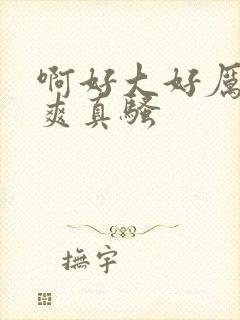 啊好大好厉
爽真骚
撫宇